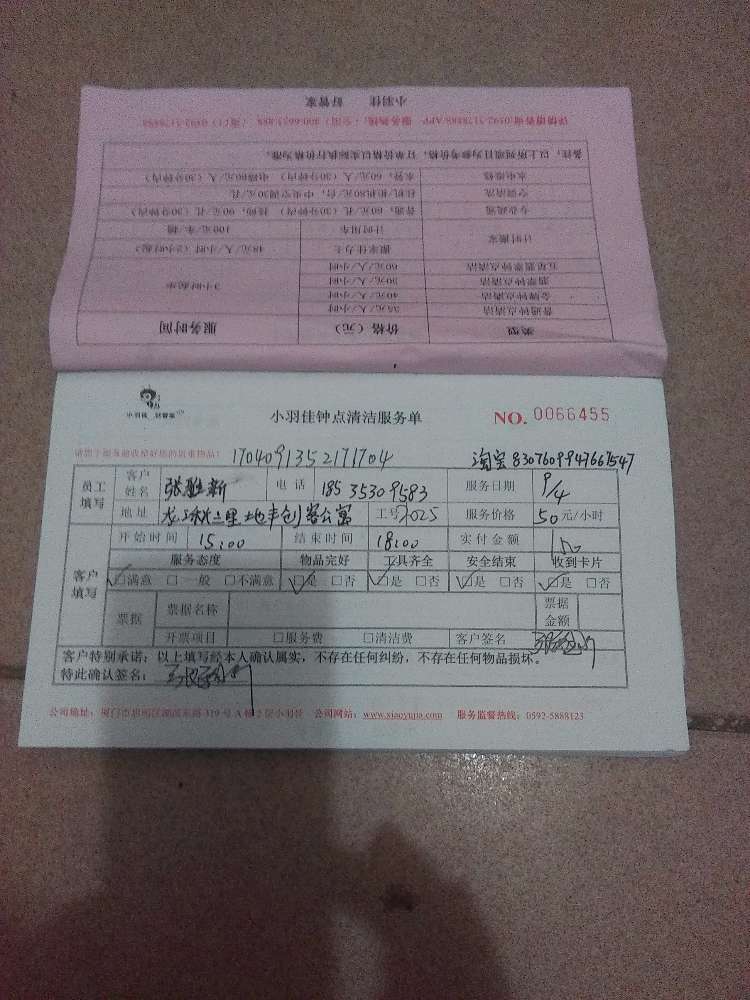 小羽佳 好管家
备注：以上所列项目为参考价格，订单价格以实际执行价格为准。
水电维修 水管，60元/人（30分钟内） 电路80元/人（30分钟内）
空调清洗 挂机/柜机80元/台，中央空调30元/孔
专业疏通 普通，60元/孔（30分钟内） 特殊，90元/孔（30分钟内）
计时搬家 计时用车 100元/车/趟
搬家佳力士 48元/人/小时（2小时起）
五星翡翠钟点清洁 60元/人/小时 3小时起步
翡翠钟点清洁 50元/人/小时
金牌钟点清洁 40元/人/小时
普通钟点清洁 35元/人/小时
类型 价格（元） 服务时间
小羽佳 好管家
小羽佳钟点清洁服务单
NO. 0066455
1704091352171704
淘宝 8307609947667547
员工填写 客户姓名 电话 18535309583 服务日期 9/4
地址 工号 2025 服务价格 50 元/小时
开始时间 15:00 结束时间 18:00 实付金额 150
客户填写 服务态度 物品完好 工具齐全 安全结束 收到卡片
□满意 □一般 □不满意 □是 □否 □是 □否 □是 □否 □是 □否
票据 票据名称 票据金额
开票项目 □服务费 □清洁费 客户签名
客户特别承诺：以上填写经本人确认属实，不存在任何纠纷，不存在任何物品损坏。
特此确认签名：
公司地址：厦门市思明区湖滨东路319号A幢2层小羽佳 公司网站：www.xiaoyujia.com 服务监督热线：0592-5888123